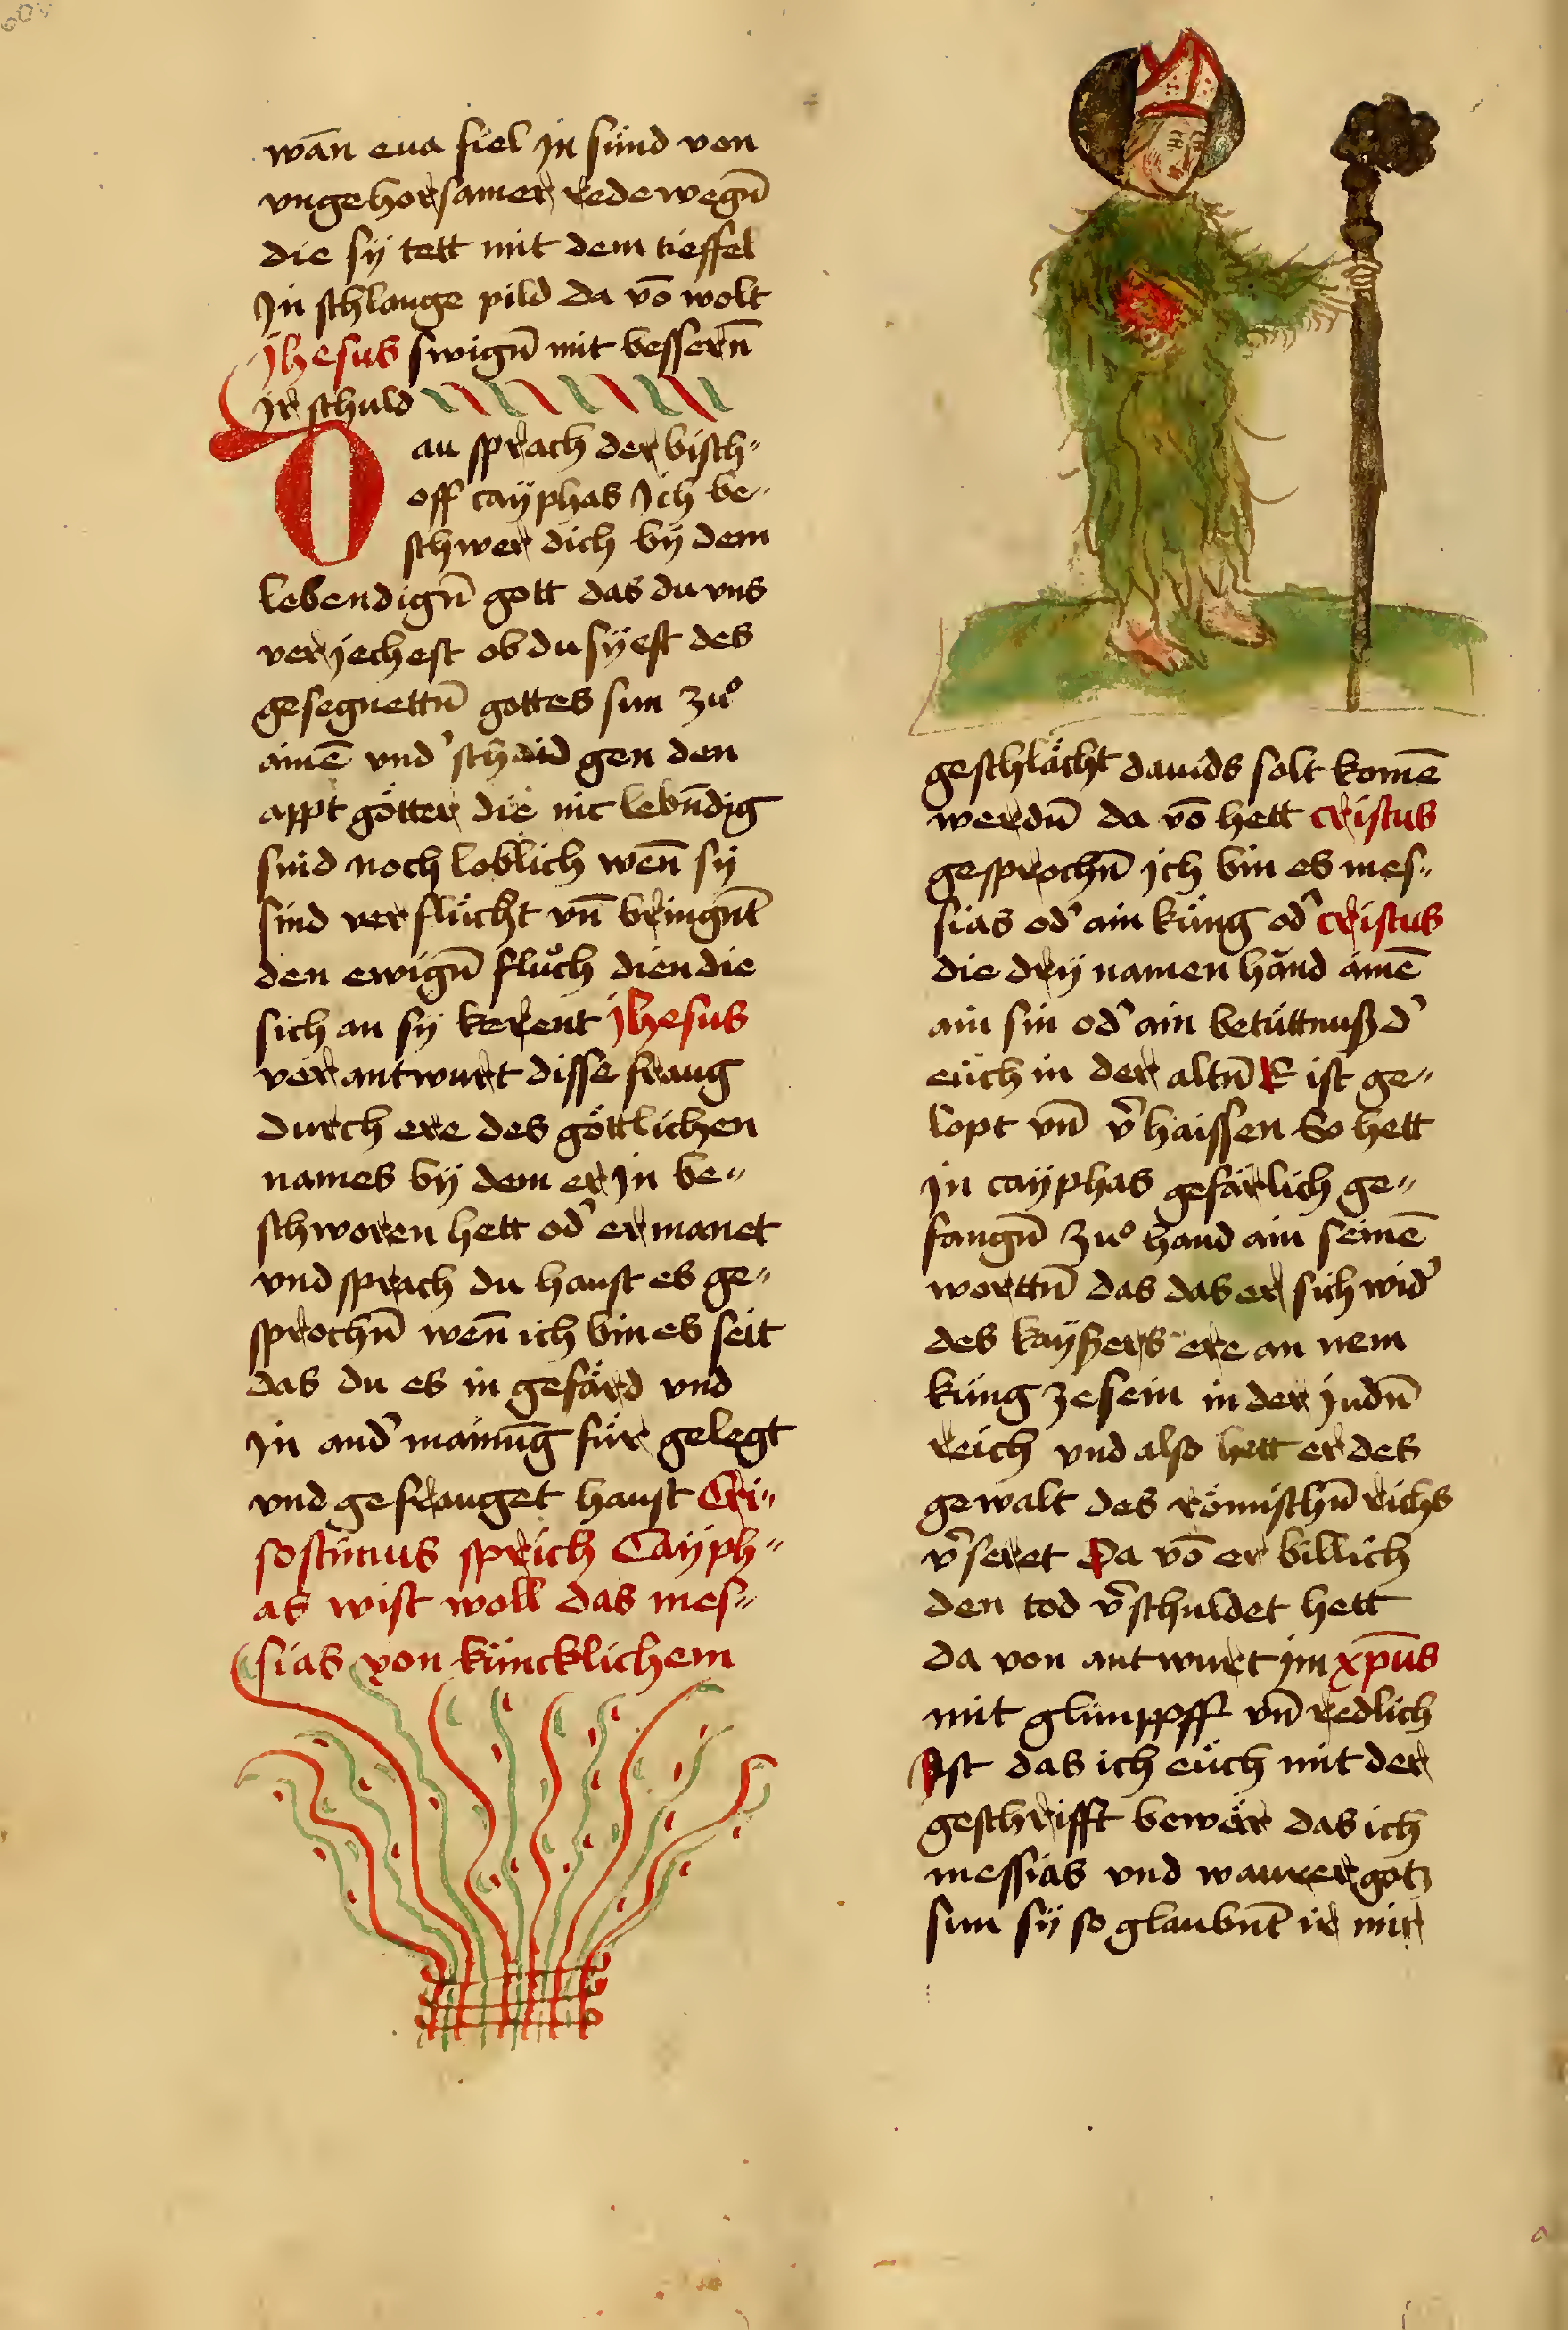 wān eua fiel jn sünd von
vngehorsamer rede wegn̄
die sÿ tett mit dem tieffel
Jn schlange pild da vō wolt
Jhesus swign̄ mit bessern̄
jr schuld
Dau sprach der bisch〃
off caÿphas Jch be〃
schwer dich bÿ dem
lebendign̄ gott das du vns
verjechest ob du sÿest des
gesegnettn̄ gottes sun zuͦ
ainē vnd̓schaid gen den
appt götter die nit lebn̄dig
sind noch loblich wen̄ sÿ
sind verfluͤcht vn̄ bringn̄t
den ewign̄ fluͦch dien die
sich an sÿ kerent Jhesus
verantwurt disse fraug
durch ere des göttlichen
names bÿ dem er jn be〃
schworen hett od̓ ermanet
vnd sprach du haust es ge〃
sprochn̄ wen̄ ich bin es seit
das du es in gefärd vnd
Jn and̓ mainūg für gelegt
vnd gefrauget haust Cri〃
sostimus sprich Caÿph〃
as wist woll das mes〃
sias von küncklichem
geschlächt dauids solt komē
werdn̄ da vō hett cristus
gesprochn̄ jch bin es mes〃
sias od̓ ain küng od̓ cristus
die drÿ namen händ ainē
ain sin od̓ ain betüttnuß d̓
eüch in der altn̄ E ist ge〃
lopt vn̄ v̓haissen So hett
jn caÿphas gefärlich ge〃
fangn̄ zuͦ hand ain seinē
worttn̄ das das er sich wid̓
des kaÿßers ere an nem
küng ze sein in der judn̄
reich vnd also hett er des
gewalt des römischn̄ richs
v̓seret Da vō er billich
den tod v̓schuldet hett
da von antwurt jm xp̄us
mit glimppff vn̄ redlich
Ist das ich eüch mit der
geschrifft bewär das ich
messias vnd waurer gotz
sun sÿ so glaubn̄t ir mir